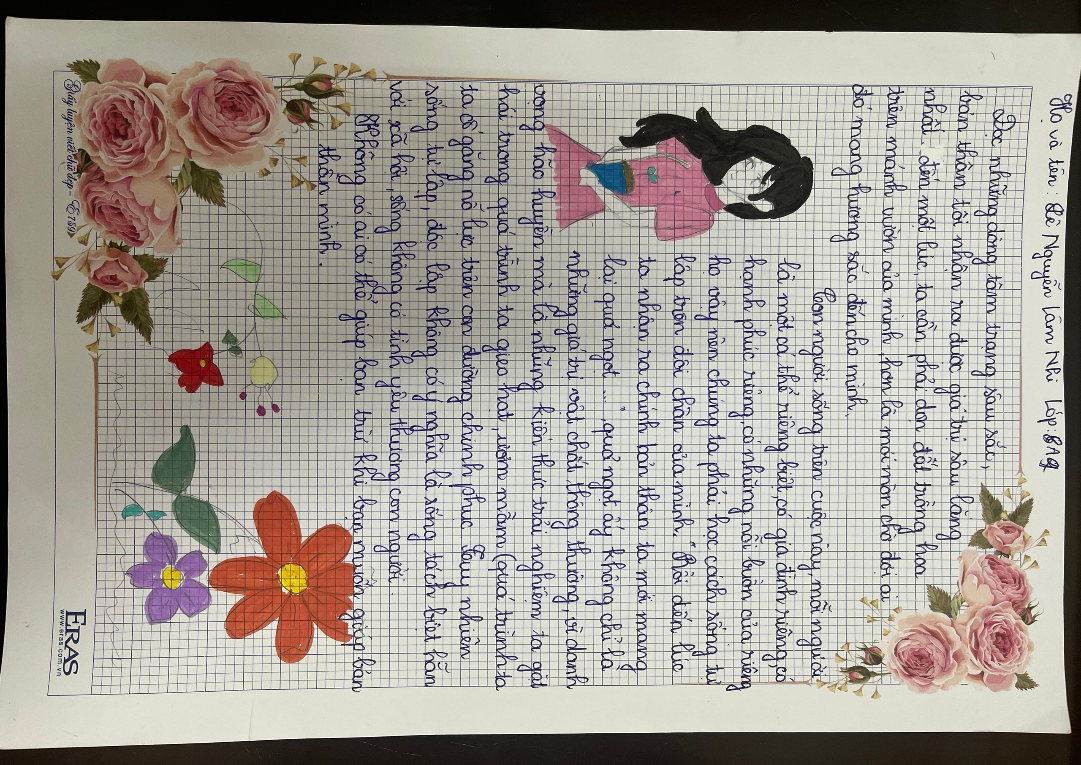 Họ và tên: Lê Nguyễn Lâm Nhi Lớp: 8A9
Đọc những dòng tâm trạng sâu sắc,
bản thân tôi nhận ra được giá trị sâu lắng
nhất, đến một lúc, ta cần phải dọn đất trồng hoa
trên mảnh vườn của mình hơn là mỏi mòn chờ đợi ai
đó mang hương sắc đến cho mình.
Con người sống trên cuộc này, mỗi người
là một cá thể riêng biệt, có gia đình riêng, có
hạnh phúc riêng, có những nỗi buồn của riêng
họ vậy nên chúng ta phải học cách sống tự
lập trên đôi chân của mình. "Rồi đến lúc
ta nhận ra chính bản thân ta mới mang
lại quả ngọt ...", quả ngọt ấy không chỉ là
những giá trị vật chất thông thường, vì danh
vọng hão huyền mà là những kiến thức trải nghiệm ta gặt
hái trong quá trình ta gieo hạt, ươm mầm (quá trình ta
ta cố gắng nỗ lực trên con đường chinh phục. Tuy nhiên
sống tự lập, độc lập không có ý nghĩa là sống tách biệt hẳn
với xã hội, sống không có tình yêu thương con người.
Không có ai có thể giúp bạn trừ khi bạn muốn giúp bản
thân mình.
Giấy luyện viết chữ đẹp - E7669
ERAS
www.eras.com.vn